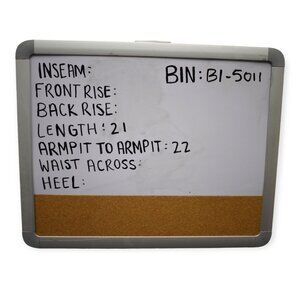 INSEAM: BIN: BI-5011
FRONT RISE:
BACK RISE:
LENGTH: 21
ARMPIT TO ARMPIT: 22
WAIST ACROSS:
HEEL: